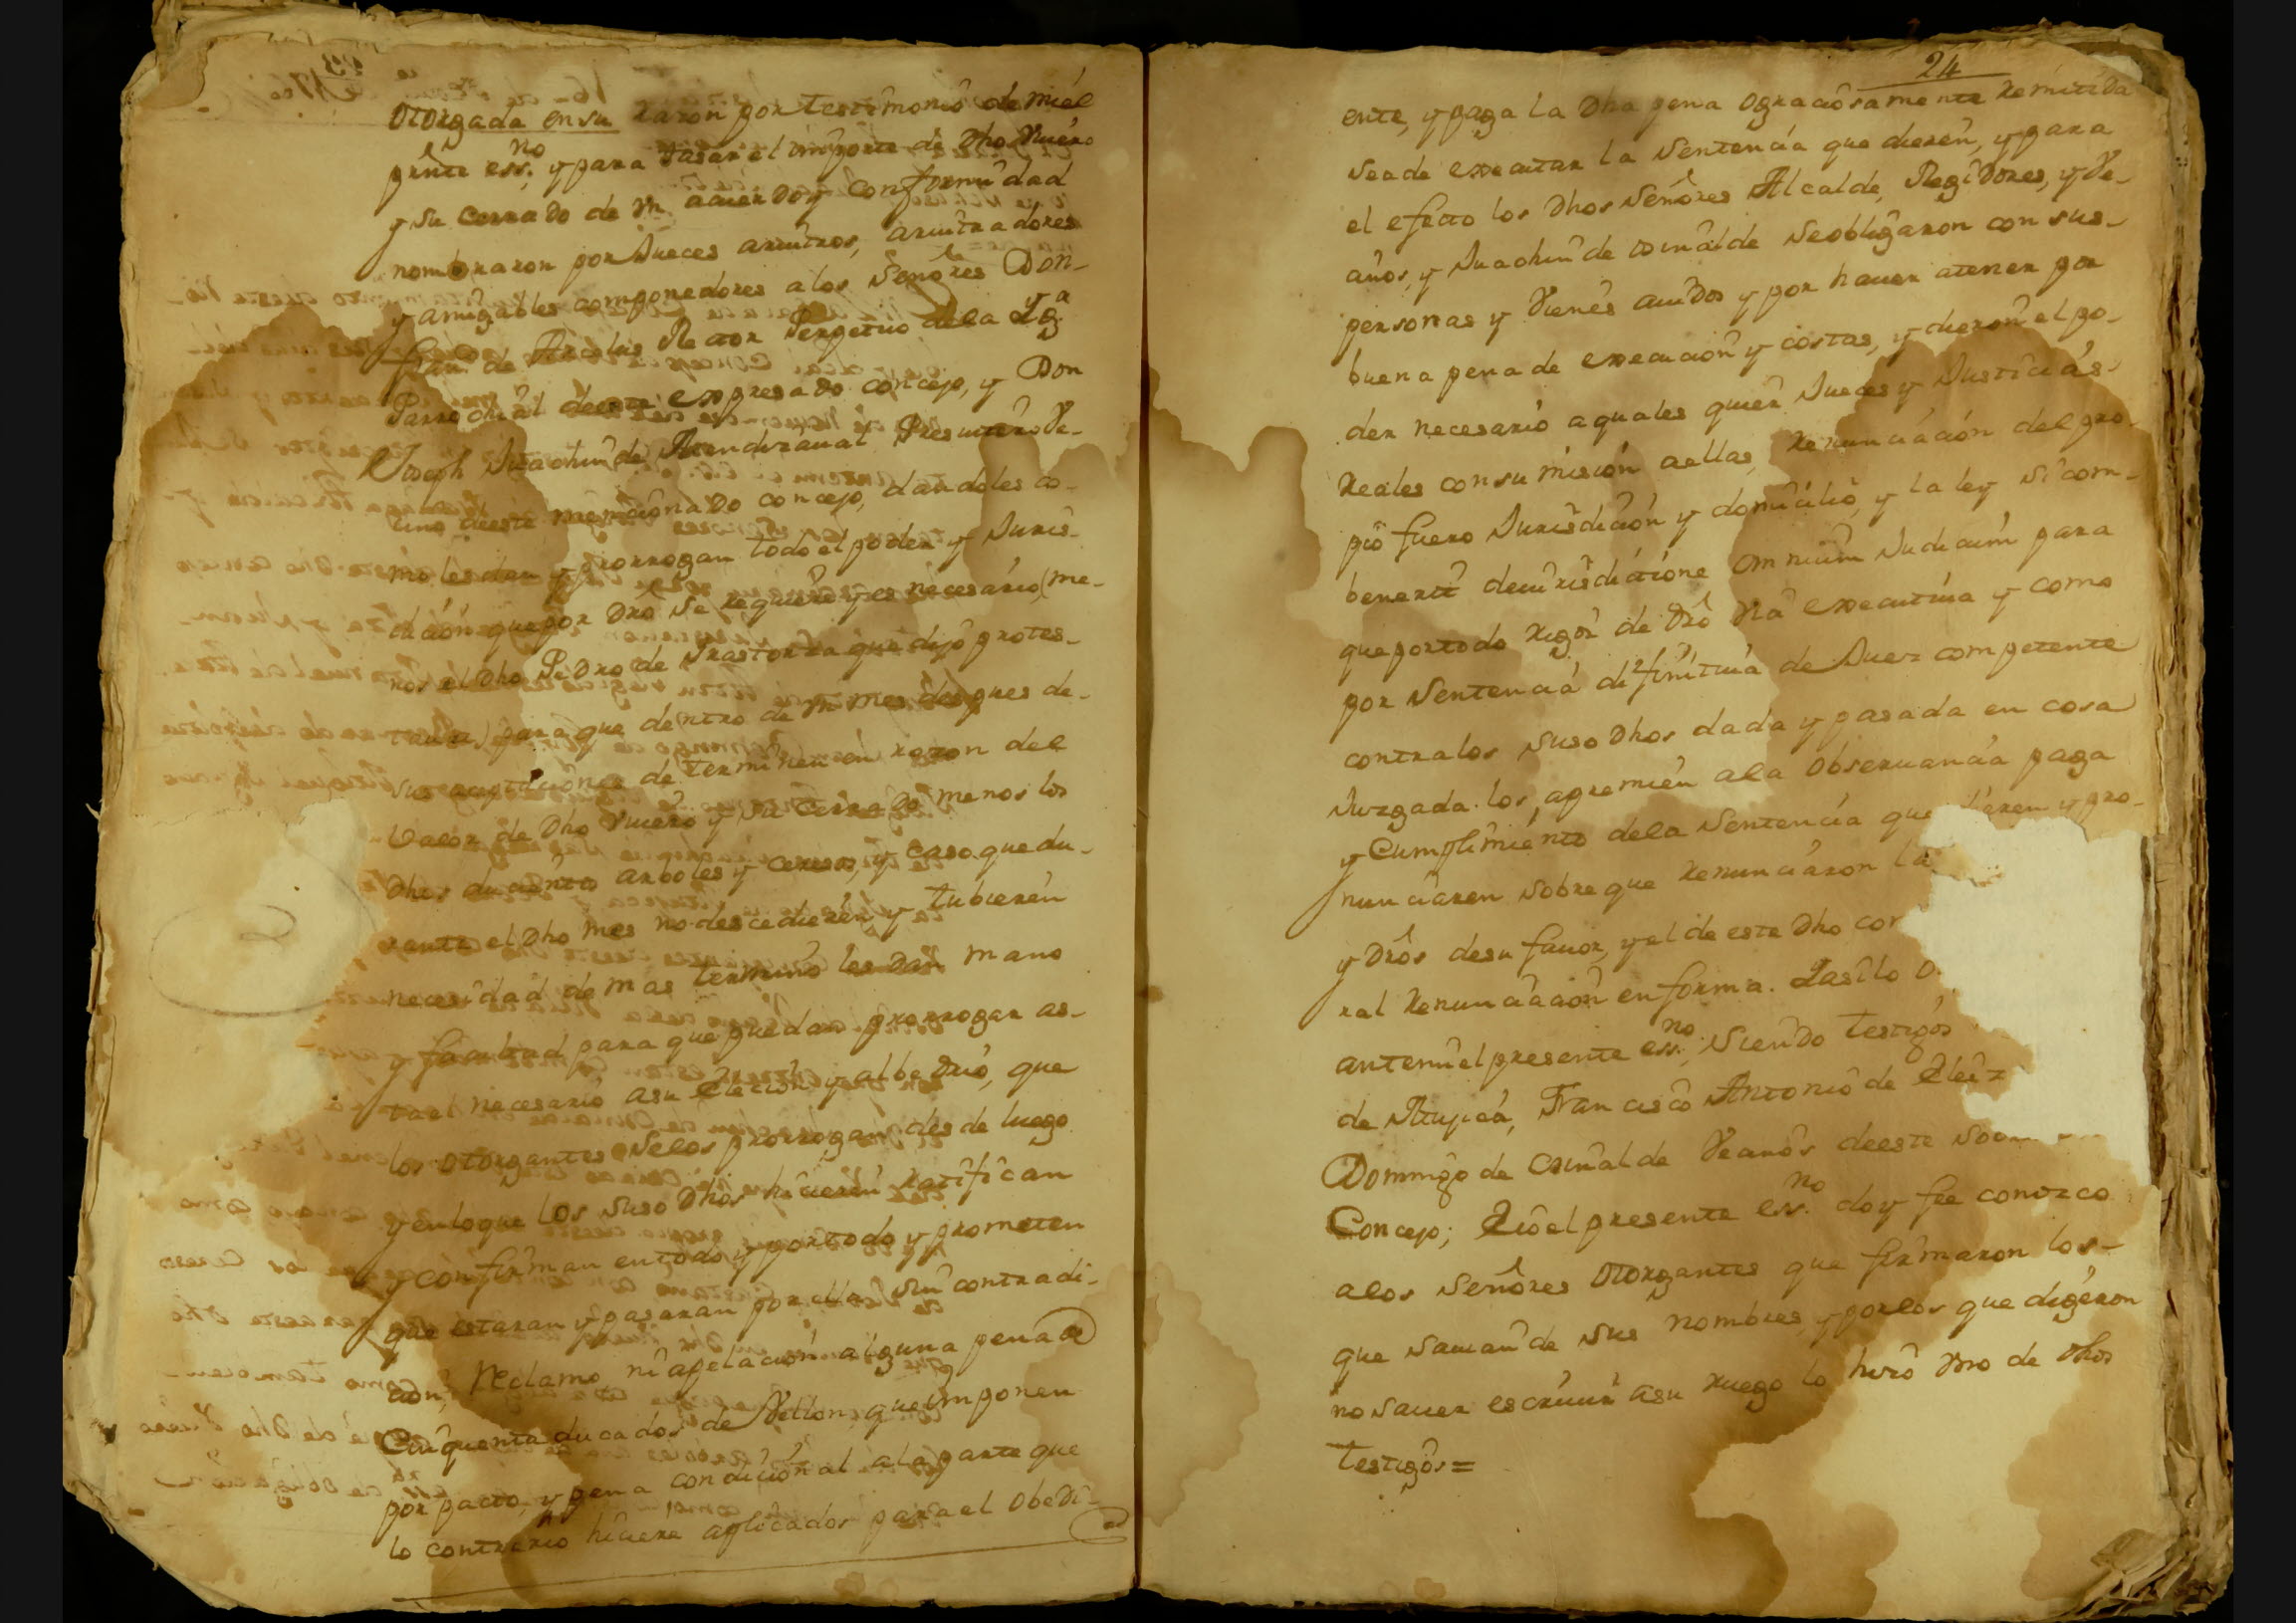 otorgada en su razon por testimonio de mi el
pñte essno, y para tasar el importe de dho viuero
y su cerrado de vn acuerdo y conformidad
nombraron por Jueces arvitros, arvitradores
y amigables componedores a los Señores Don
Franco de Rector Perpetuo de la Yga
Parrochial de este expresado concejo, y Don
Joseph Juachin de Arendizaual Presuitero Ve-
cino de este mencionado concejo, dandoles co-
mo les dan y prorrogan todo el poder y Juris-
dicion que por dro se requiere y es necesario (me-
nos el dho Pedro de Yrastorza que dijo protes-
taua) para que dentro de vn mes despues de
sus aceptaciones determinen en razon del
Valor de dho viuero y su cerrado menos los
dhos ducientos arboles y ceresos, y caso que du-
rante el dho mes no descedieren y tubieren
necesidad de mas termino les dan mano
y facultad para que puedan prorrogar as-
ta el necesario a su elecion y albedrio, que
los otorgantes se los prorrogan desde luego
y en lo que los suso dhos hicieren ratifican
y confirman en todo y por todo y prometen
que estaran y pasaran por ella sin contradi-
cion, reclamo ni apelacion alguna pena de
Cinquenta ducados de Vellon que imponen
por pacto, y pena condicional a la parte que
lo contrario hiciere aplicados para el obedi-
24
ente, y paga la dha pena o graciosamente remitida
sea de executar la sentencia que dieren, y para
el efecto los dhos Señores Alcalde, Regidores, y Ve-
cinos, y Juachin de se obligaron con sus
personas y vienes auidos y por hauer a tener por
buena pena de execucion y costas, y dieron el po-
der necesario a quales quier Jueces y Justicias
reales con su mision a ellas, renunciacion del pro-
pio fuero Jurisdicion y domicilio, y la ley si com-
benerit de iurisdictione omnium Judicum para
que por todo rigor de dro via executiua y como
por sentencia difinitiua de Juez competente
contra los suso dhos dada y pasada en cosa
Juzgada. los apremien a la obseruancia paga
y Cumplimiento de la sentencia que dieren y pro-
nunciaren sobre que renunciaron la
y dros de su fauor, y el de este dho
ral renunciacion en forma. Y asi lo
ante mi el presente essno, siendo testigos
de Francisco Antonio de
Domingo de Vecinos de este
Concejo; E io el presente essno doy fee conozco
a los Señores otorgantes que firmaron los
que sauian de sus nombres, y por los que digeron
no sauer escriuir a su ruego lo hizo vno de dhos
testigos =